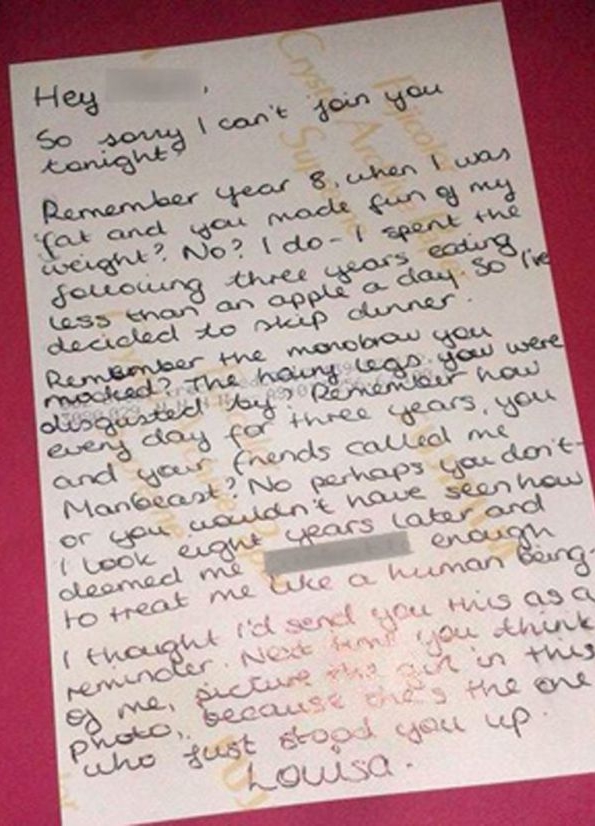 Hey ,
So sorry I can't join you
tonight.
Remember year 8, when I was
fat and you made fun of my
weight? No? I do - I spent the
following three years eating
less than an apple a day. So I've
decided to skip dinner.
Remember the monobrow you
mocked? The hairy legs you were
disgusted by? Remember how
every day for three years, you
and your friends called me
Manbeast? No perhaps you don't -
or you wouldn't have seen how
I look eight years later and
deemed me enough
to treat me like a human being.
I thought I'd send you this as a
reminder. Next time you think
of me, picture the girl in this
photo, because she's the one
who just stood you up.
Louisa.
Fujicolor
Crystal Archive Paper
Supreme